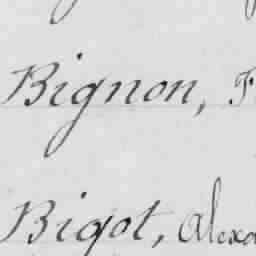 Bignon, F
Bigot, Alexa